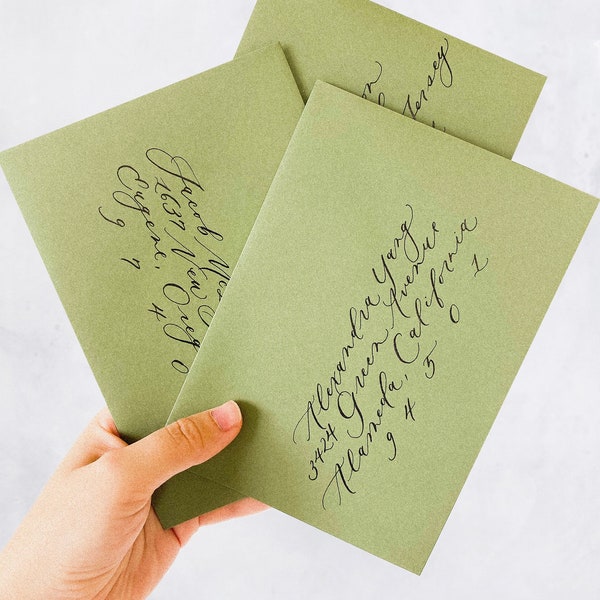 Alexandra Yang
3424 Green Avenue
Alameda, California
9 4 5 0 1
Jacob
1637 New
Eugene, Oreg
9 7 4 0
Jersey